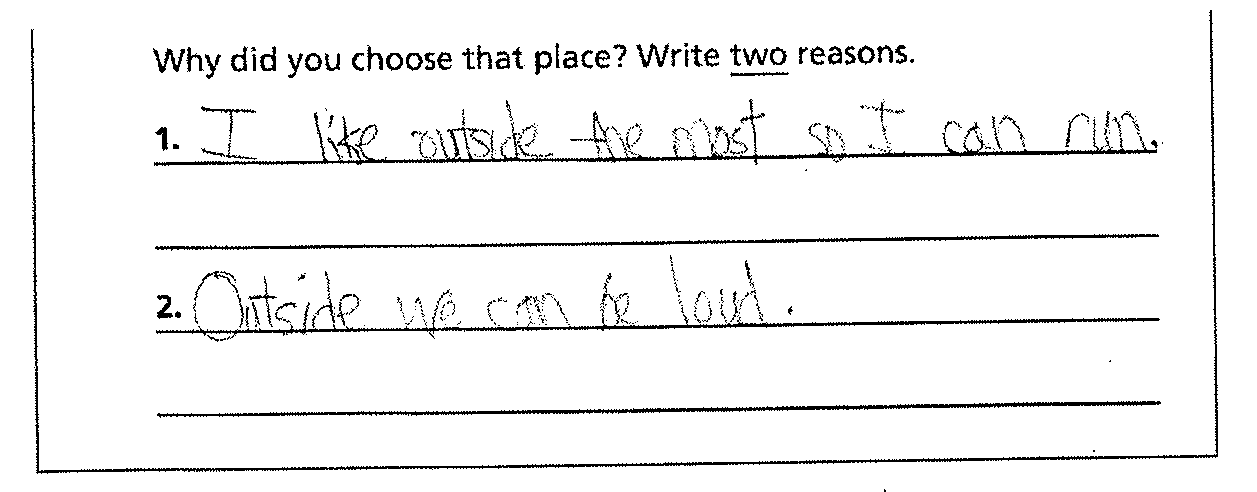 Why did you choose that place? Write two reasons.
1. I like outside the most so I can run.
2. Outside we can be loud.